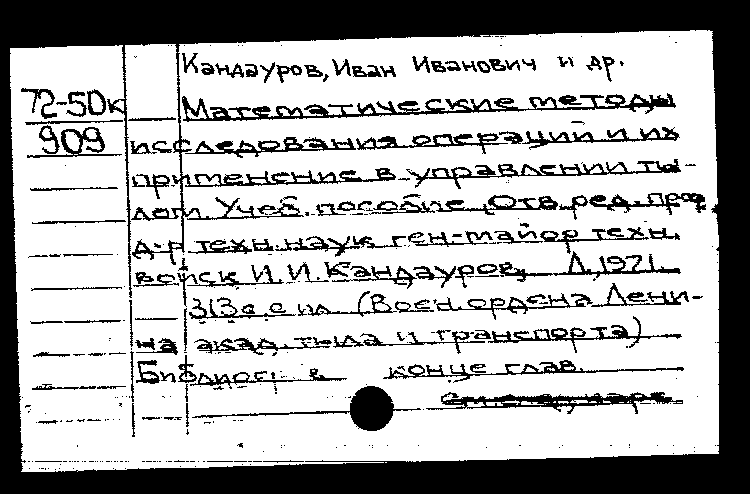 Кандауров, Иван Иванович и др.
72-50к Математические методы
909 исследования операций и их
применение в управлении ты-
лом. Учеб. пособие. (Отв. ред. проф.,
д-р техн. наук ген-майор техн.
войск И.И. Кандауров). Л., 1971.
313 с. с ил. (Воен. ордена Лени-
на акад. тыла и транспорта)
Библиогр. в конце глав.